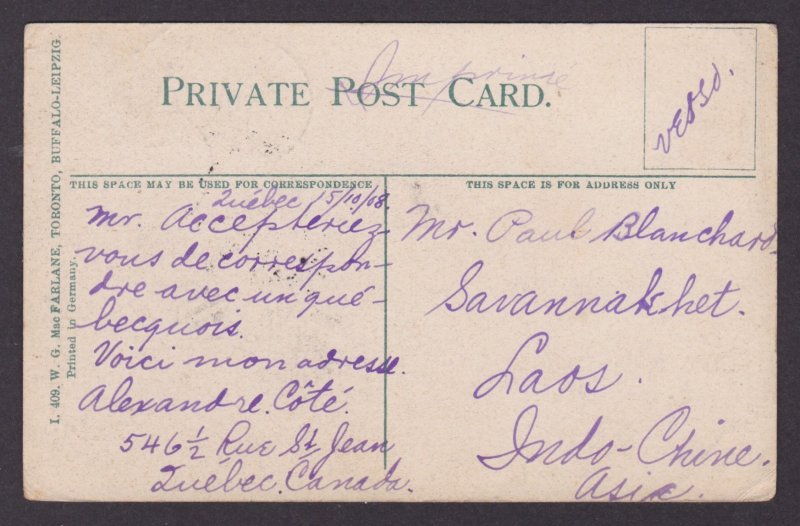 I. 409. W. G. MacFARLANE, TORONTO, BUFFALO-LEIPZIG.
Printed in Germany.
Imprimé
PRIVATE POST CARD.
verso.
THIS SPACE MAY BE USED FOR CORRESPONDENCE
THIS SPACE IS FOR ADDRESS ONLY
Québec 15/10/08.
Mr. Accepteriez-
vous de correspon-
dre avec un qué-
becquois.
Voici mon adresse.
Alexandre. Côté.
546½ Rue St Jean
Québec. Canada.
Mr. Paul Blanchard
Savannakhet.
Laos.
Indo-Chine.
Asia.